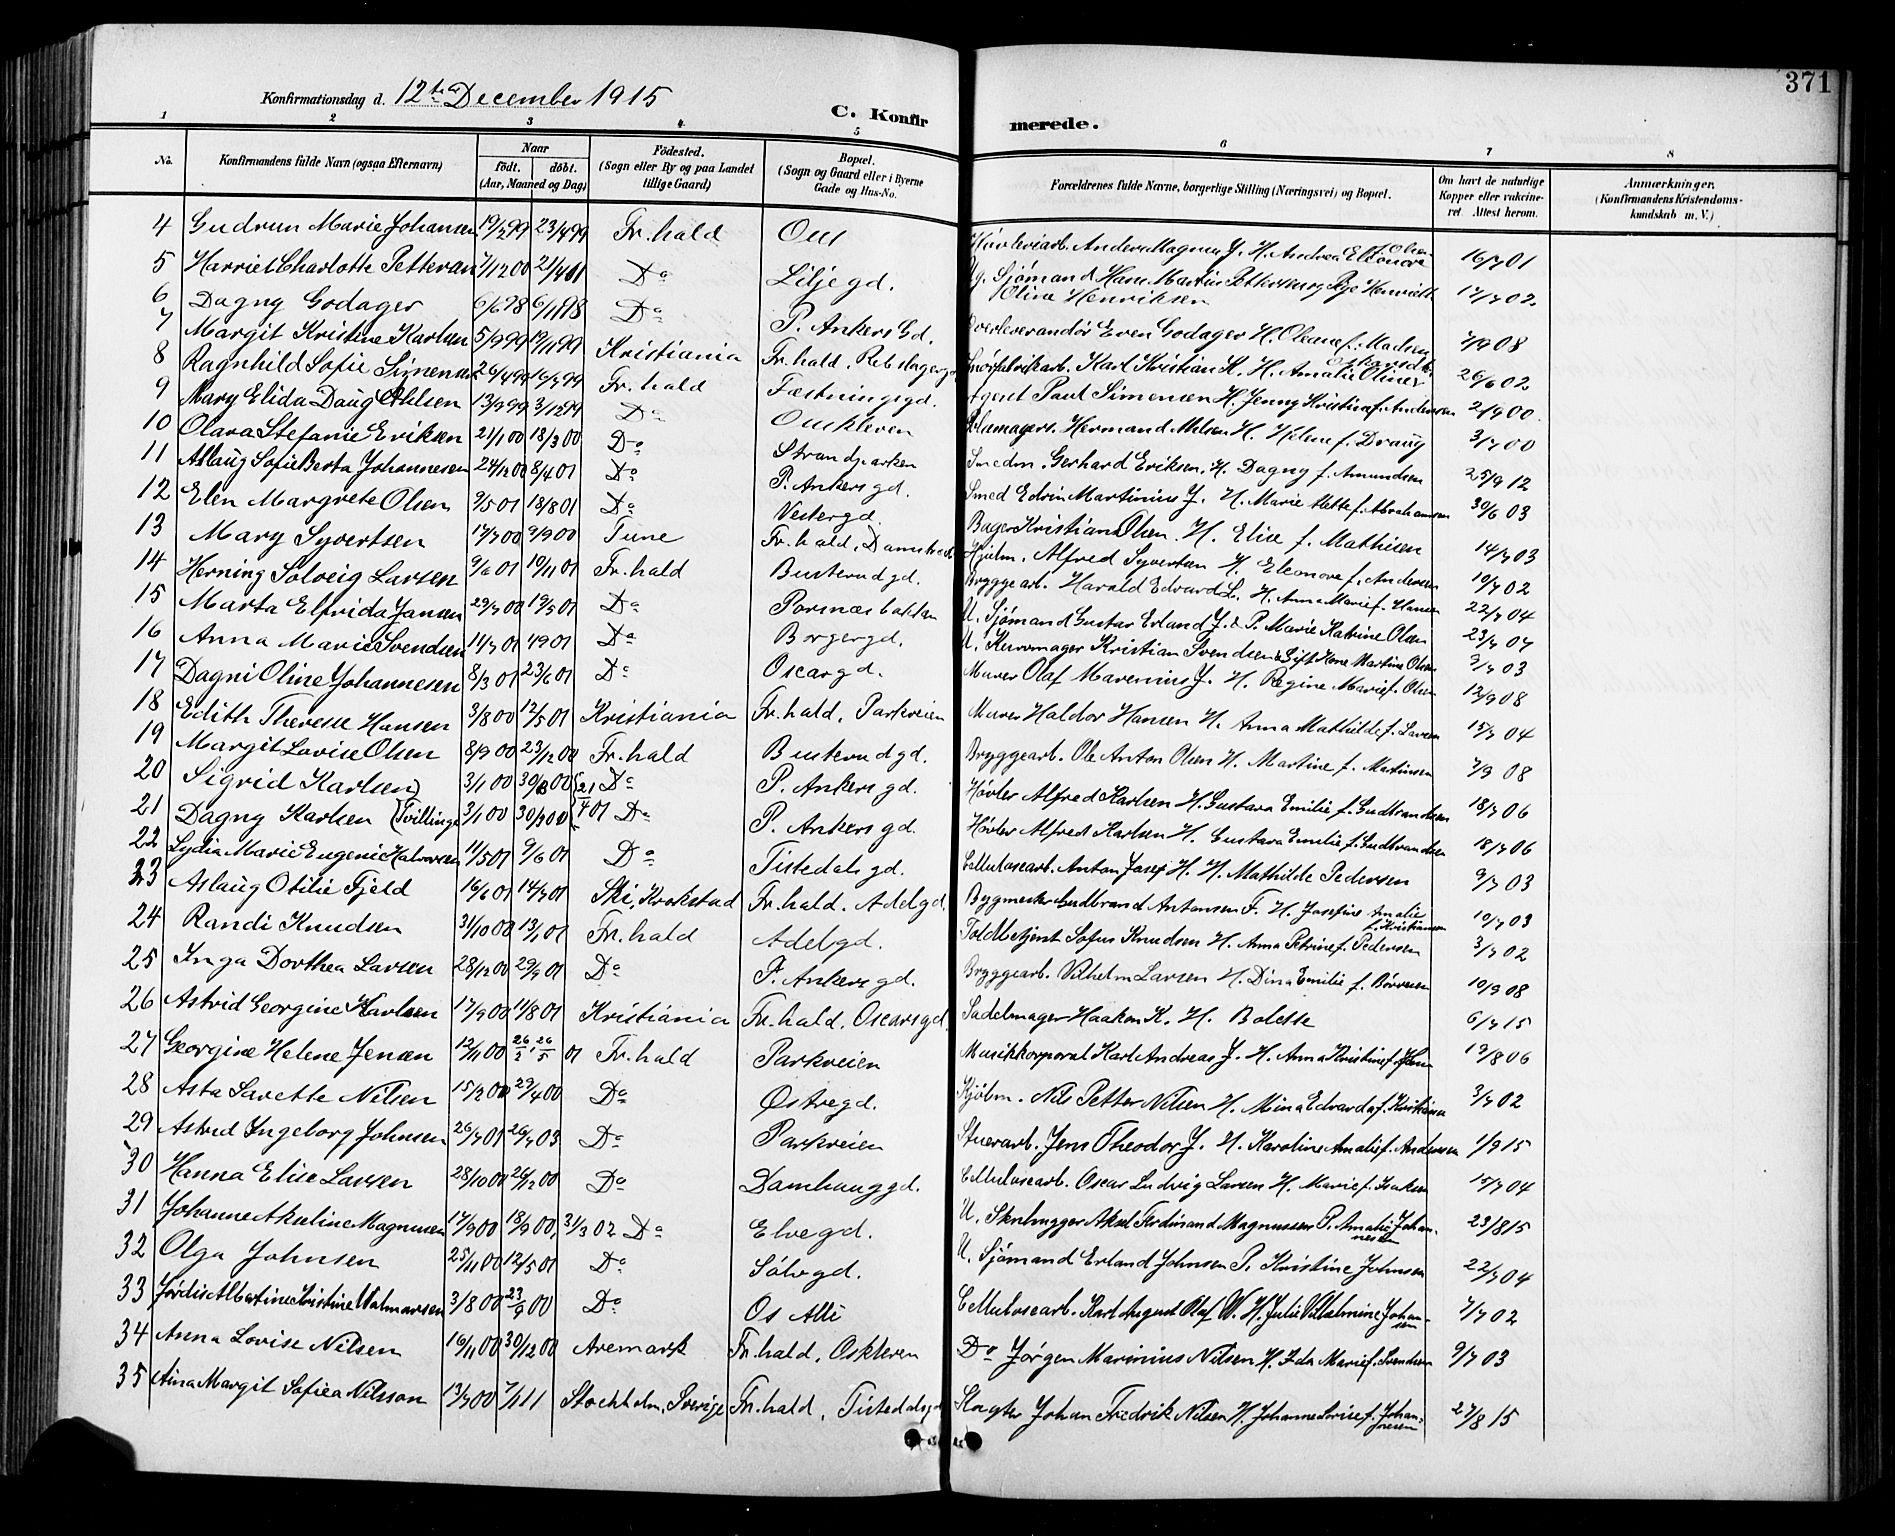 371
Konfirmationsdag d. 12te December 1915
C. Konfirmerede.
1 2 3 4 5 6 7 8
No. Konfirmandens fulde Navn (ogsaa Efternavn) Naar født. døbt. (Aar, Maaned og Dag) Fødested. (Sogn eller By og paa Landet tillige Gaard) Bopæl. (Sogn og Gaard eller i Byerne Gade og Hus-No. Forældrenes fulde Navne, borgerlige Stilling (Næringsvei) og Bopæl. Om havt de naturlige Kopper eller vakcineret. Attest herom. Anmærkninger. (Konfirmandens Kristendomskundskab m. V.)
4 Gudrun Marie Johansen 19/2 99 23/4 99 Fr.hald Os Høvleriarb. Anders Magnus J. H. Andrea Eleonore f. Olsen 16/7 01
5 Harriet Charlotte Pettersen 7/12 00 21/4 01 Do Liljegd. Ug. Sjømand Hans Martin Pettersen og Pige Henriette Oline Henriksen 17/7 02
6 Dagny Godager 6/6 98 6/11 98 Do P. Ankers Gd. Even Godager H. Oleane f. Madsen 7/9 08
7 Margit Kristine Karlsen 5/9 99 19/11 99 Kristiania Fr.hald. Rebslagergd. Karl Kristian K. H. Amalie Oline 26/6 02
8 Ragnhild Sofie Simensen 26/4 99 16/7 99 Fr.hald Fæstningsgd. Agent Paul Simensen H. Jenny Kristine f. Andersen 2/9 00
9 Mary Elida Daug Ohlsen 13/9 99 3/12 99 Do Oskleven Herman Ohlsen H. Helene f. Draug 3/7 00
10 Olava Stefanie Eriksen 21/1 00 18/3 00 Do Strandparken Smedm. Gerhard Eriksen. H. Dagny f. Amundsen 25/9 12
11 Aslaug Sofie Berta Johannesen 24/12 00 8/4 01 Do P. Ankersgd. Smed Edvin Martinius J. H. Marie Mette f. Abrahamsen 30/6 03
12 Elen Margrete Olsen 9/5 01 18/8 01 Do Vestergd. Bager Kristian Olsen H. Elise f. Mathisen 14/7 03
13 Mary Syvertsen 17/7 00 9/9 00 Tune Fr.hald, Alfred Syvertsen H. Eleonore f. Andersen 19/7 02
14 Herning Solveig Larsen 9/6 01 10/11 01 Fr.hald Busterudgd. Bryggearb. Harald Edvard L. H. Anna Marie f. Hansen 22/7 04
15 Marta Elfrida Jansen 29/7 00 19/5 01 Do Porsnæsbakken U. Sjømand Gustav Erland J. & P. Marie Katrine Olsen 23/7 07
16 Anna Marie Svendsen 14/7 01 4/9 01 Do Borgergd. U. Kurvmager Kristian Svendsen & Gift Kone Martine Olsen 9/7 03
17 Dagni Oline Johannesen 8/3 01 23/6 01 Do Oscargd. Murer Olaf Marenius J. H. Regine Marie f. Olsen 12/9 08
18 Edith Therese Hansen 3/8 00 12/5 01 Kristiania Fr.hald, Parkveien Murer Haldor Hansen H. Anna Mathilde f. Larsen 15/7 04
19 Margit Lovise Olsen 8/9 00 23/12 00 Fr.hald Busterudgd. Bryggearb. Ole Anton Olsen H. Martine f. Martinsen 7/9 08
20 Sigrid Karlsen 3/1 00 30/3 00 21/4 01 Do P. Ankersgd. Høvler Alfred Karlsen H. Gustava Emilie f. Gudbrandsen 18/7 06
21 Dagny Karlsen (Tvillinge) 3/1 00 30/3 00 Do P. Ankersgd. Høvler Alfred Karlsen H. Gustava Emilie f. Gudbrandsen 18/7 06
22 Lydia Marie Eugenie Halvorsen 11/5 01 9/6 01 Do Tistedalsgd. Cellulosearb. Anton Josef H. H. Mathilde Pedersen 9/7 03
23 Aslaug Otilie Fjeld 16/6 01 14/7 01 Ski, Krokstad Fr.hald. Adelgd. Bygmester Gudbrand Antonsen F. H. Josefine Amalie f. Kristiansen 10/7 03
24 Randi Knudsen 31/10 00 13/1 01 Fr.hald Adelsgd. Toldbetjent Sofus Knudsen H. Anna Petrine f. Pedersen 3/7 02
25 Inga Dorthea Larsen 28/12 00 29/9 01 Do P. Ankersgd. Bryggearb. Vilhelm Larsen H. Dina Emilie f. Børresen 10/9 08
26 Astrid Georgine Karlsen 17/9 00 11/8 01 Kristiania Fr.hald, Oscarsgd. Sadelmager Haakon K. H. Bolette 6/7 15
27 Georgine Helene Jensen 12/11 00 26/2, 26/5 01 Fr.hald Parkveien Musikkorporal Karl Andreas J. H. Anna Kristine f. 19/8 06
28 Asta Lavette Nilsen 15/2 00 29/4 00 Do Østregd. Nils Petter Nilsen H. Mina Edvarda f. Kristiansen 3/7 02
29 Astrid Ingeborg Johnsen 26/7 01 26/7 03 Do Parkveien Stuerarb. Jens Theodor J. H. Karoline Amalie f. Andersen 1/9 15
30 Hanna Elise Larsen 28/10 00 26/12 00 Do Damhauggd. Cellulosearb. Oscar Ludvig Larsen H. Marie f. Isaksen 15/7 04
31 Johanne Akseline Magnussen 17/9 00 18/9 00, 31/3 02 Do Elvegd. U. Stenhugger Aksel Ferdinand Magnussen P. Amalie Johannesen 23/8 15
32 Olga Johnsen 25/11 00 12/5 01 Do Sølvgd. U. Sjømand Erland Johnsen P. Kristine Johnsen 22/7 04
33 Jørdis Albertine Kristine Walmarsen 3/8 00 23/9 00 Do Os Allé Cellulosearb. Karl August Olaf W. H. Julie Vilhelmine Johansen 7/7 02
34 Anna Lovise Nilsen 16/11 00 30/12 00 Aremark Fr.hald, Oskleven Do Jørgen Marinius Nilsen H. Ida Marie f. Svendsen 9/7 03
35 Aina Margit Sofiea Nilsson 13/7 00 7/1 11 Stockholm, Sverige Fr.hald, Tistedalsgd. Slagter Johan Fredrik Nilsen H. Johanne Lovise f. Johannesen 27/8 15